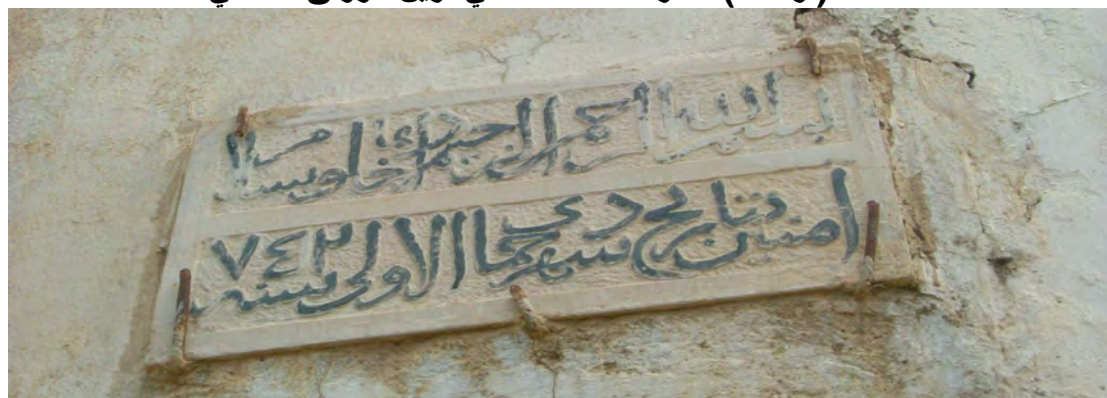 بسم الله الرحمن الرحيم ادخلوها بسلام
امنين بتاريخ شهر جمادى الاولى سنه ٧٤٢